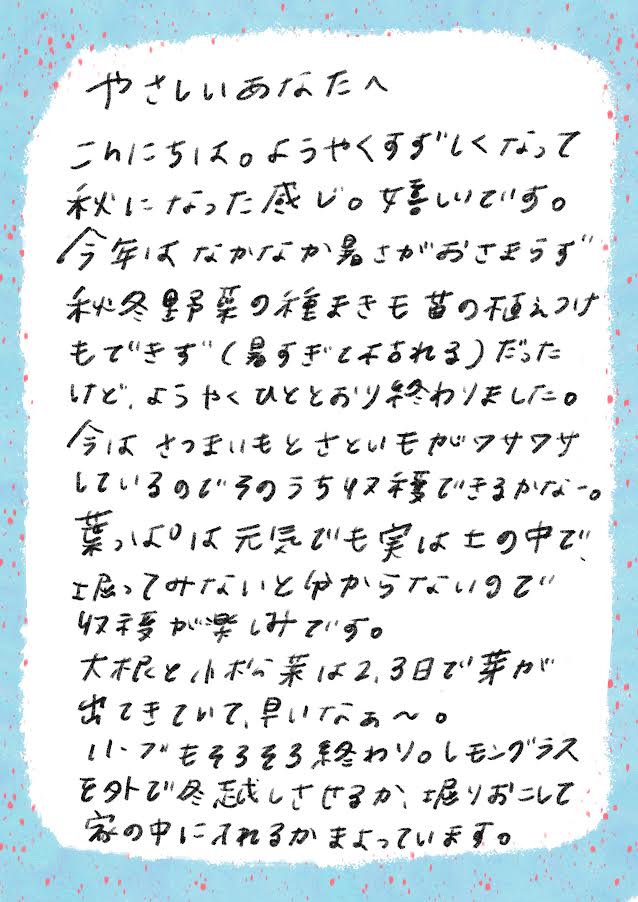 やさしいあなたへ
こんにちは。ようやくすずしくなって
秋になった感じ。嬉しいです。
今年はなかなか暑さがおさまらず
秋冬野菜の種まきも苗の植えつけ
もできず(暑すぎて枯れる)だった
けど、ようやくひととおり終わりました。
今はさつまいもとさといもがワサワサ
しているのでそのうち収穫できるかなー。
葉っぱは元気でも実は土の中で、
堀ってみないと分からないので
収穫が楽しみです。
大根と小松菜は2,3日で芽が
出てきていて、早いなぁ〜。
ハーブもそろそろ終わり。レモングラス
を外で冬越しさせるか、堀りおこして
家の中に入れるかまよっています。